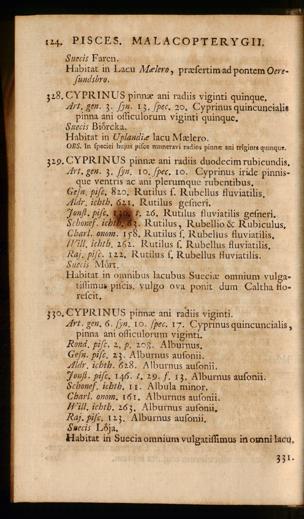 124. PISCES. MALACOPTERYGII.
Suecis Faren.
Habitat in Lacu Mælero, præsertim ad pontem Oere-
sundsbro.
328. CYPRINUS pinnæ ani radiis viginti quinque.
Art. gen. 3. syn. 13. spec. 20. Cyprinus quincuncialis
pinna ani ossiculorum viginti quinque.
Suecis Biörcka.
Habitat in Uplandiæ lacu Mælero.
OBS. In speciei hujus pisce numeravi radios pinnæ ani triginta quinque.
329. CYPRINUS pinnæ ani radiis duodecim rubicundis.
Art. gen. 3. syn. 10. spec. 10. Cyprinus iride pinnis-
que ventris ac ani plerumque rubentibus.
Gesn. pisc. 820. Rutilus s. Rubellus fluviatilis.
Aldr. ichth. 621. Rutilus gesneri.
Jonst. pisc. 130. t. 26. Rutilus fluviatilis gesneri.
Schonef. ichth. 63. Rutilus, Rubellio & Rubiculus.
Charl. onom. 158. Rutilus s. Rubellus fluviatilis.
Will. ichth. 262. Rutilus s. Rubellus fluviatilis.
Raj. pisc. 122. Rutilus s. Rubellus fluviatilis.
Suecis Mört.
Habitat in omnibus lacubus Sueciæ omnium vulga-
tissimus piscis, vulgo ova ponit dum Caltha flo-
rescit.
330. CYPRINUS pinnæ ani radiis viginti.
Art. gen. 6. syn. 10. spec. 17. Cyprinus quincuncialis,
pinna ani ossiculorum viginti.
Rond. pisc. 2. p. 208. Alburnus.
Gesn. pisc. 23. Alburnus ausonii.
Aldr. ichth. 628. Alburnus ausonii.
Jonst. pisc. 146. t. 29. f. 13. Alburnus ausonii.
Schonef. ichth. 11. Albula minor.
Charl. onom. 161. Alburnus ausonii.
Will. ichth. 263. Alburnus ausonii.
Raj. pisc. 123. Alburnus ausonii.
Suecis Löja.
Habitat in Suecia omnium vulgatissimus in omni lacu.
331.